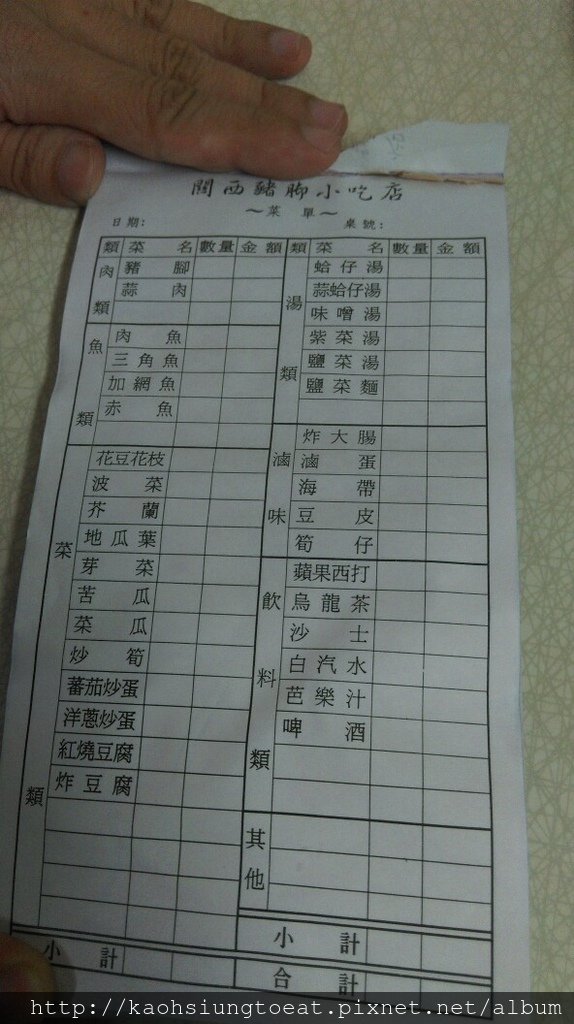 關西豬腳小吃店
～菜 單～
日期: 桌號:
類 菜名 數量 金額 類 菜名 數量 金額
肉類
豬腳
蒜肉
魚類
肉魚
三角魚
加網魚
赤魚
菜類
花豆花枝
波菜
芥蘭
地瓜葉
芽菜
苦瓜
菜瓜
炒筍
蕃茄炒蛋
洋蔥炒蛋
紅燒豆腐
炸豆腐
小計
湯類
蛤仔湯
蒜蛤仔湯
味噌湯
紫菜湯
鹽菜湯
鹽菜麵
滷味
炸大腸
滷蛋
海帶
豆皮
筍仔
飲料類
蘋果西打
烏龍茶
沙士
白汽水
芭樂汁
啤酒
其他
小計
合計
http://kaohsiungtoeat.pixnet.net/album